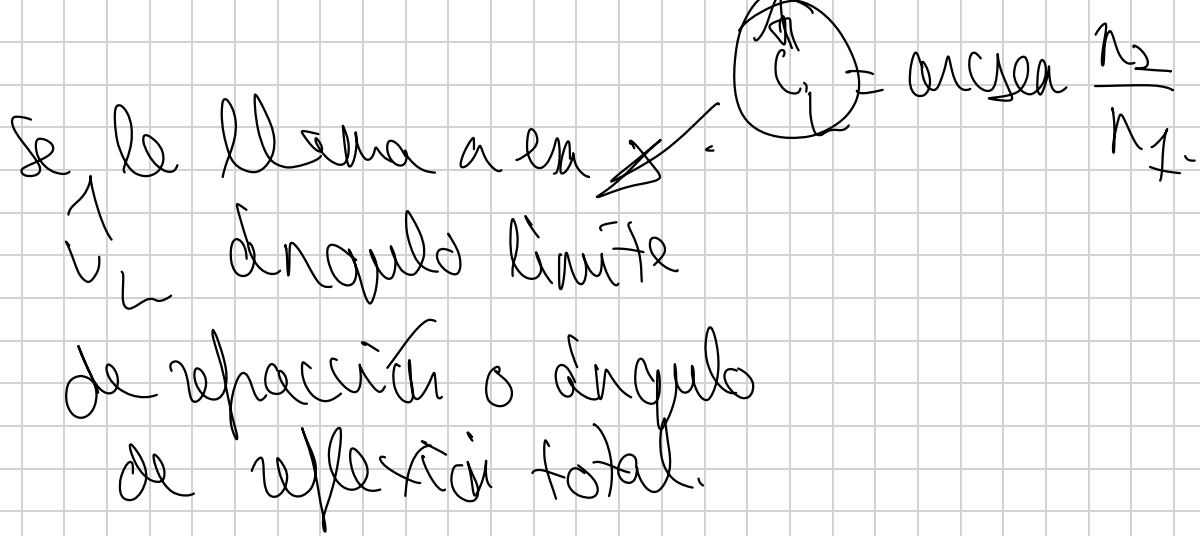 î_L = arcsen n₂/n₁.
se le llama a em
î_L ángulo límite
de refracción o ángulo
de reflexión total.